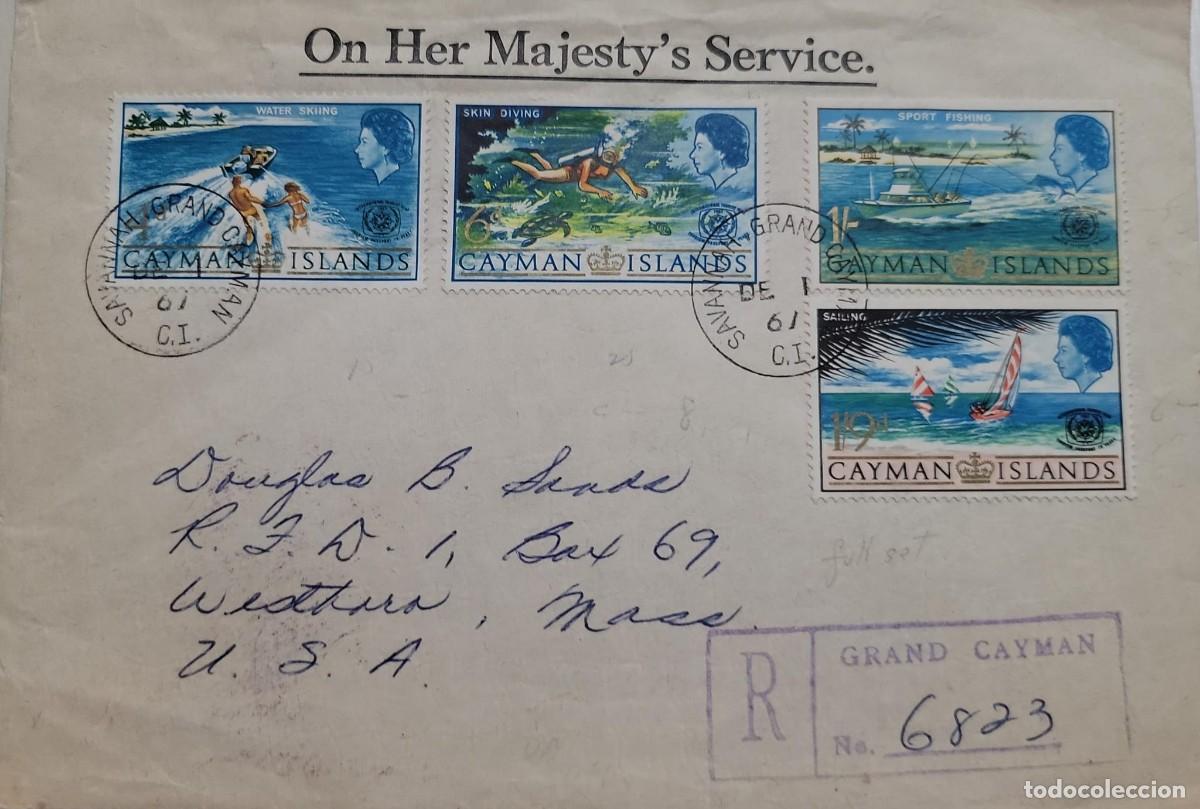 On Her Majesty's Service.
WATER SKIING
4d
CAYMAN ISLANDS
SKIN DIVING
6d
CAYMAN ISLANDS
SPORT FISHING
1/-
CAYMAN ISLANDS
SAILING
1/9d
CAYMAN ISLANDS
SAVANNAH, GRAND CAYMAN
DE 1
67
C.I.
SAVANNAH, GRAND CAYMAN
DE 1
67
C.I.
Douglas B. Sands
R.F.D. 1, Box 69,
Westboro, Mass.
U.S.A.
full set
R
GRAND CAYMAN
No. 6823
todocoleccion